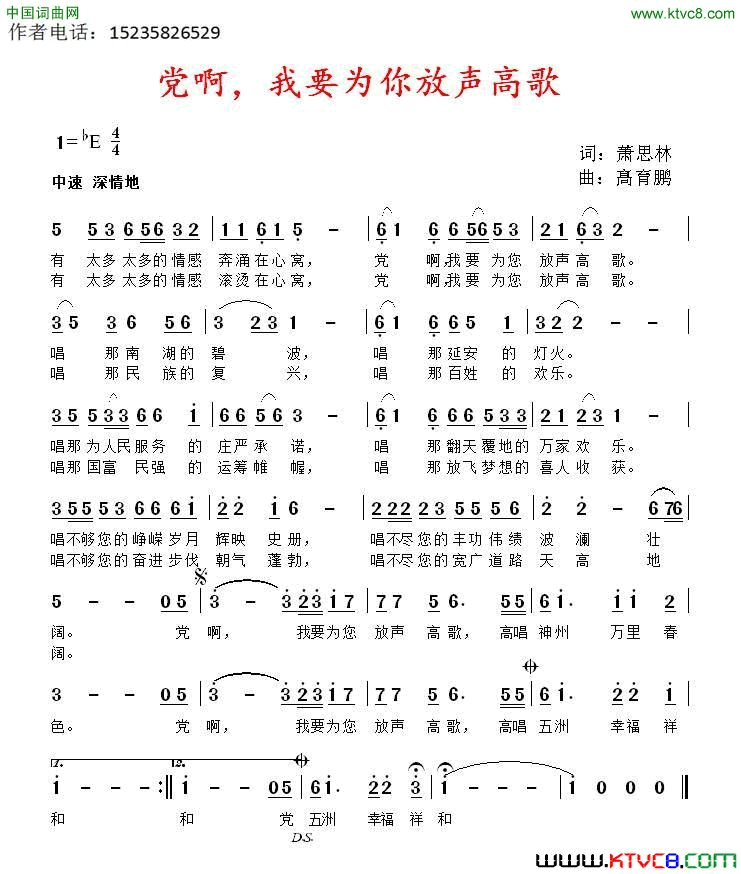 中国词曲网
www.ktvc8.com
作者电话：15235826529
党啊，我要为你放声高歌
1=♭E 4/4
词：萧思林
曲：髙育鹏
中速 深情地
5 5 3 6 5 6 3 2 | 1 1 6 1 5 - | 6 1 6 5 6 5 3 | 2 1 6 3 2 - |
有 太多 太多的 情感 奔涌在心窝， 党 啊,我要 为您 放声 高 歌。
有 太多 太多的 情感 滚烫在心窝， 党 啊,我要 为您 放声 高 歌。
3 5 3 5 6 5 6 | 3 2 3 1 - | 6 1 6 5 6 5 1 | 3 2 2 - - |
唱 那南 湖的 碧 波， 唱 那延安 的 灯火。
唱 那民 族的 复 兴， 唱 那百姓 的 欢乐。
3 5 5 3 3 6 6 1 | 6 6 5 6 3 - | 6 1 6 6 6 5 3 3 | 2 1 2 3 1 - |
唱那为人民服务 的 庄严 承 诺， 唱 那翻天覆地的 万家 欢 乐。
唱那国富 民强 的 运筹 帷 幄， 唱 那放飞梦想的 喜人 收 获。
3 5 5 5 3 6 6 6 1 | 2 2 1 6 - | 2 2 2 2 3 5 5 5 6 | 2 2 - 6 7 6 |
唱不够您的峥嵘 岁月 辉映 史 册， 唱不尽您的丰功 伟绩 波 澜 壮
唱不够您的奋进 步伐 朝气 蓬 勃， 唱不尽您的宽广 道路 天 高 地
5 - - 0 5 | 3 - 3 2 3 1 7 | 7 7 5 6. 5 5 | 6 1. 1 1 2 |
阔。 党 啊， 我要为您 放声 高 歌，高唱 神州 万里 春
阔。
3 - - 0 5 | 3 - 3 2 3 1 7 | 7 7 5 6. 5 5 | 6 1. 2 2 1 |
色。 党 啊， 我要为您 放声 高 歌，高唱 五洲 幸福 祥
1. 2.
1 - - - :‖ 1 - - 0 5 | 6 1. 2 2 3 | 1 - - - | 1 0 0 0 ‖
和 和 党 五洲 幸福 祥 和
D.S.
www.KTVC8.com